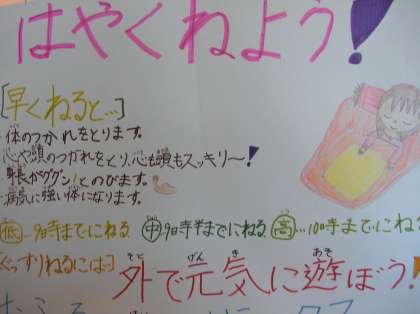 はやくねよう!
[早くねると…]
・体のつかれをとります。
・心や頭のつかれをとり、心も頭もスッキリ〜!
・身長がググン!とのびます。
・病気に強い体になります。
低…9時までにねる 中9時半までにねる 高…10時までにねる
ぐっすりねるには
外で元気に遊ぼう!